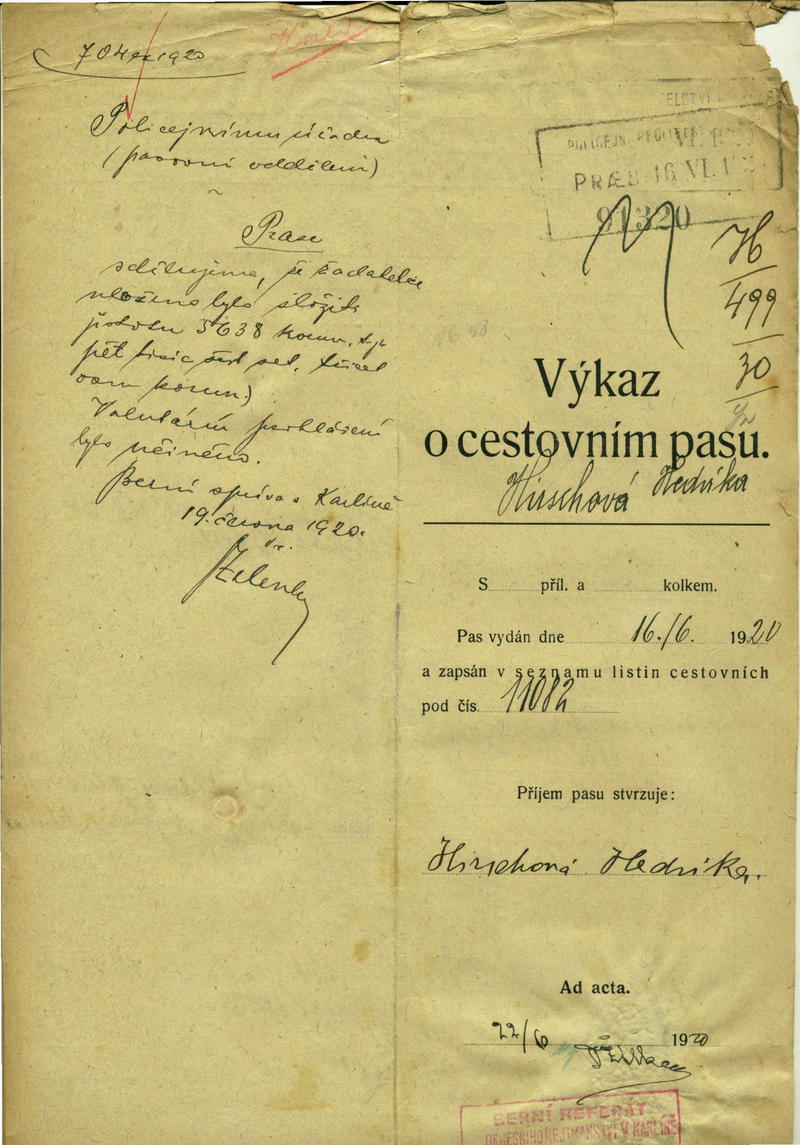 704 ex 1920
Policejnímu úřadu
(pasovní oddělení)
v
Praze
sdělujeme, že žadatelce
uloženo bylo složiti
jistotu 5638 korun, t.j.
pět tisíc šest set, třicet
osm korun.)
Valutární prohlášení
bylo učiněno.
Berní správa v Karlíně
19. června 1920.
POLICEJNÍ
PRAES. 16. VI.
91320
H
499
30
Výkaz
o cestovním pasu.
Hirschová Hedvika
S příl. a kolkem.
Pas vydán dne 16./6. 1920
a zapsán v seznamu listin cestovních
pod čís. 11082
Příjem pasu stvrzuje:
Hirschová Hedvika.
Ad acta.
22/6 1920
BERNÍ REFERÁT
OKRESNÍHO HEJTMANSTVÍ V KARLÍNĚ